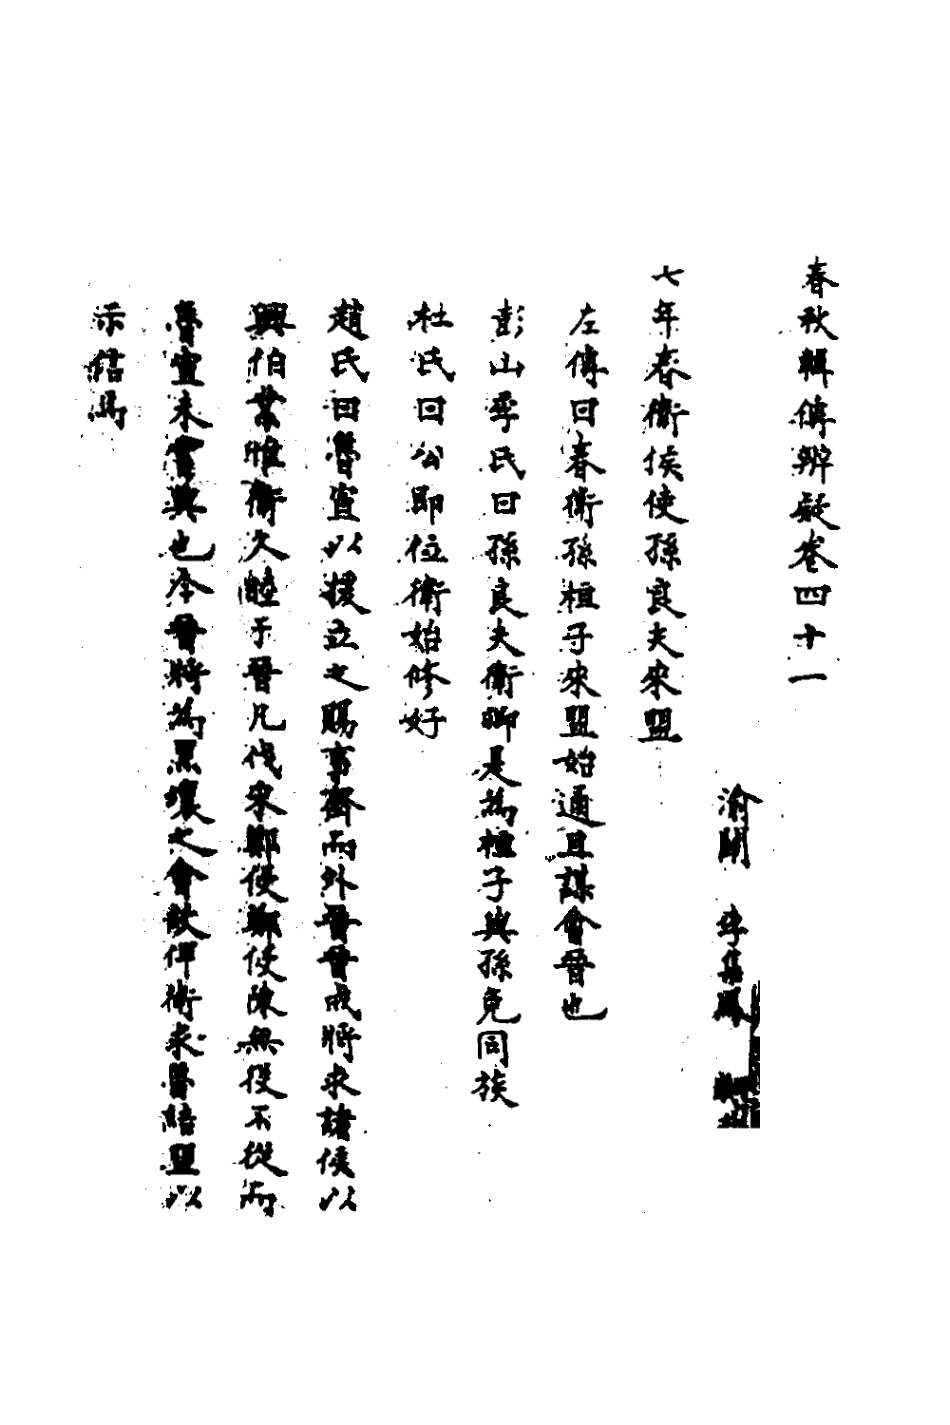 春秋輯傳辨疑卷四十一
渝關 李集鳳
七年春衛侯使孫良夫來盟
左傳曰春衛孫桓子來盟始通且謀會晉也
彭山季氏曰孫良夫衛卿是為桓子與孫免同族
杜氏曰公即位衛始修好
趙氏曰魯宣以援立之賜事齊而外晉晉成將求諸侯以
興伯業惟衛久睦于晉凡伐宋鄭侵鄭侵陳無役不從而
魯宣未嘗與也今晉將為黑壤之會故俾衛來魯結盟以
示信焉